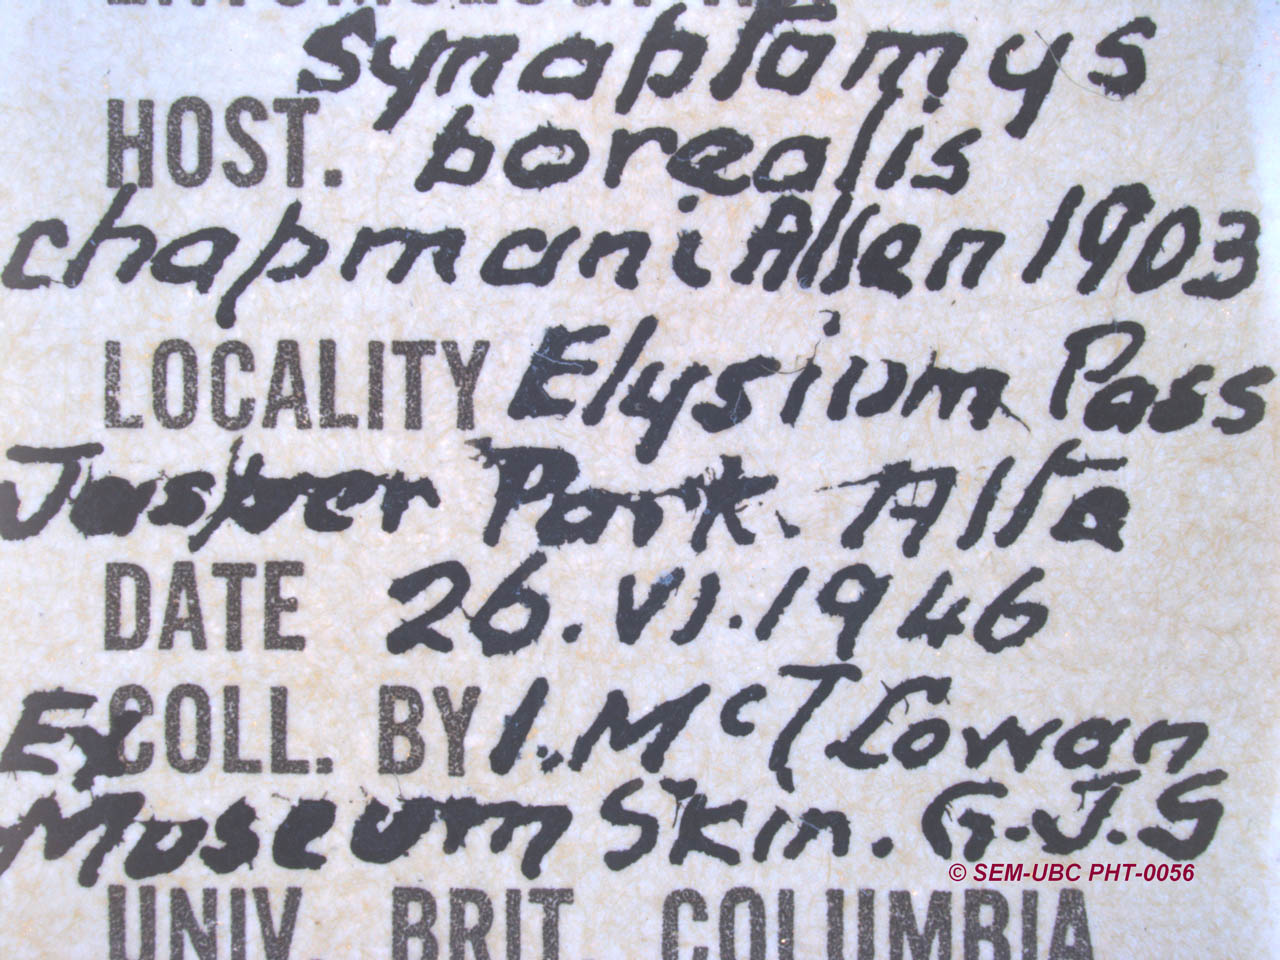 Synaptomys
HOST. borealis
chapmani Allen 1903
LOCALITY Elysium Pass
Jasper Park. Alta
DATE 26.VI.1946
Ex COLL. BY I. McT Cowan
Museum Skin. G.J.S
© SEM-UBC PHT-0056
UNIV. BRIT. COLUMBIA